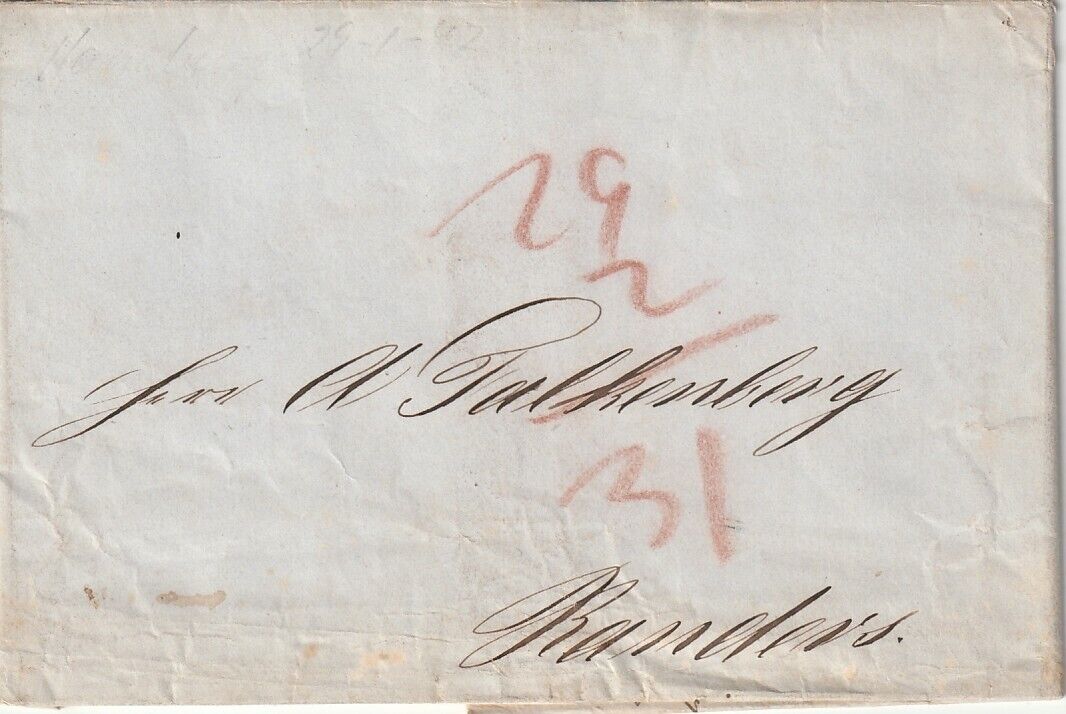 29-1-
29
2
Herr A Falkenberg
31
Randers.